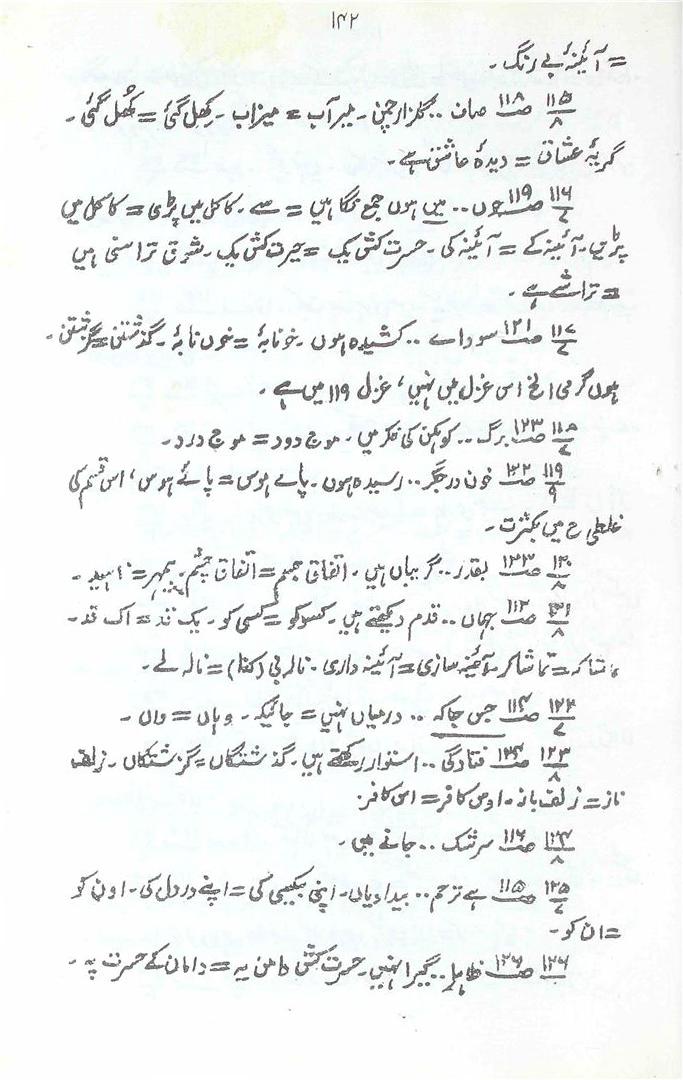 ۱۴۲
= آئینۂ بے رنگ ۔
۱۱۵/۸ صـ۱۱۸ صاف .. گلزار چمن ۔ میر آب = میزاب ۔ کِھل گئی = کُھل گئی ۔
گریۂ عشاق = دیدۂ عاشق ہے ۔
۱۱۶/۷ صـ۱۱۹ جوں .. میں ہوں جمع نگاہیں = سے ۔ کاکل میں پڑی = کاکل میں
پڑیں ۔ آئینہ کے = آئینہ کی ۔ حسرت کش یک = حیرت کش یک ۔ شوق تراستی ہیں
= تراشے ہے ۔
۱۱۷/۷ صـ۱۲۱ سودائے .. کشیدہ ہوں ۔ خونابۂ = خوں نابۂ ۔ گذشتن = گزشتن ۔
ہوں گرمی الخ اس غزل میں نہیں، غزل ۱۱۹ میں ہے ۔
۱۱۸/۷ صـ۱۲۳ برگ .. کوہکن کی فکر میں ۔ موج دود = موج درد ۔
۱۱۹/۹ صـ۱۲۲ خون در جگر .. رسیدہ ہوں ۔ پاے ہوس = پائے ہوس، اس قسم کی
غلطی ح میں بکثرت ۔
۱۲۰/۸ صـ۱۳۳ بقدر .. گریباں ہیں ۔ اتفاق جسم = اتفاق چشم ۔
۱۳۱/۸ صـ۱۱۲ جہاں .. قدم دیکھتے ہیں ۔ کسو کو = کسی کو ۔ یک قد = اک قد ۔
تماشا کر ۔ آئینہ سازی = آئینہ داری ۔ نالہ بی (کذا) = نالہ لے ۔
۱۲۲/۷ صـ۱۱۴ جس جا کہ .. درمیاں نہیں = جائیکہ ۔ وہاں = واں ۔
۱۲۳/۸ صـ۱۲۴ فتادگی .. استوار رکھتے ہیں ۔ گذشتگاں = گزشتگاں ۔ زلف
ناز = زلف باز ۔ اوس کافر = اس کافر ۔
۱۲۴/۸ صـ۱۱۶ سرشک .. جانے میں ۔
۱۲۵/۷ صـ۱۱۵ ہے ترحم .. بیدادیاں ۔ اپنی بیکسی کی = اپنے درد دل کی ۔ اون کو
= ان کو ۔
۱۲۶/۸ صـ۱۲۶ ظاہرا .. گیرا نہیں ۔ حسرت کش دامن یہ = داماں کے حسرت پہ ۔